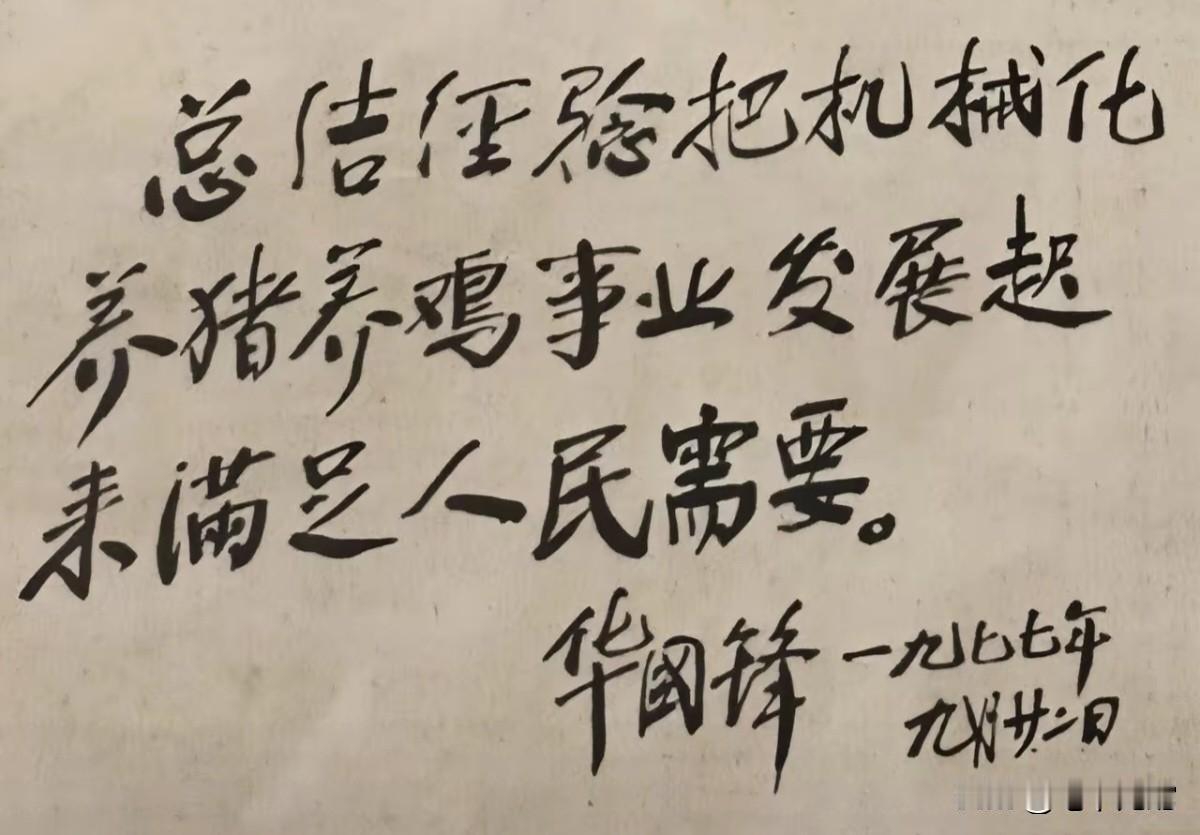 总结经验把机械化
养猪养鸡事业发展起
来满足人民需要。
华国锋 一九七七年
九月廿二日